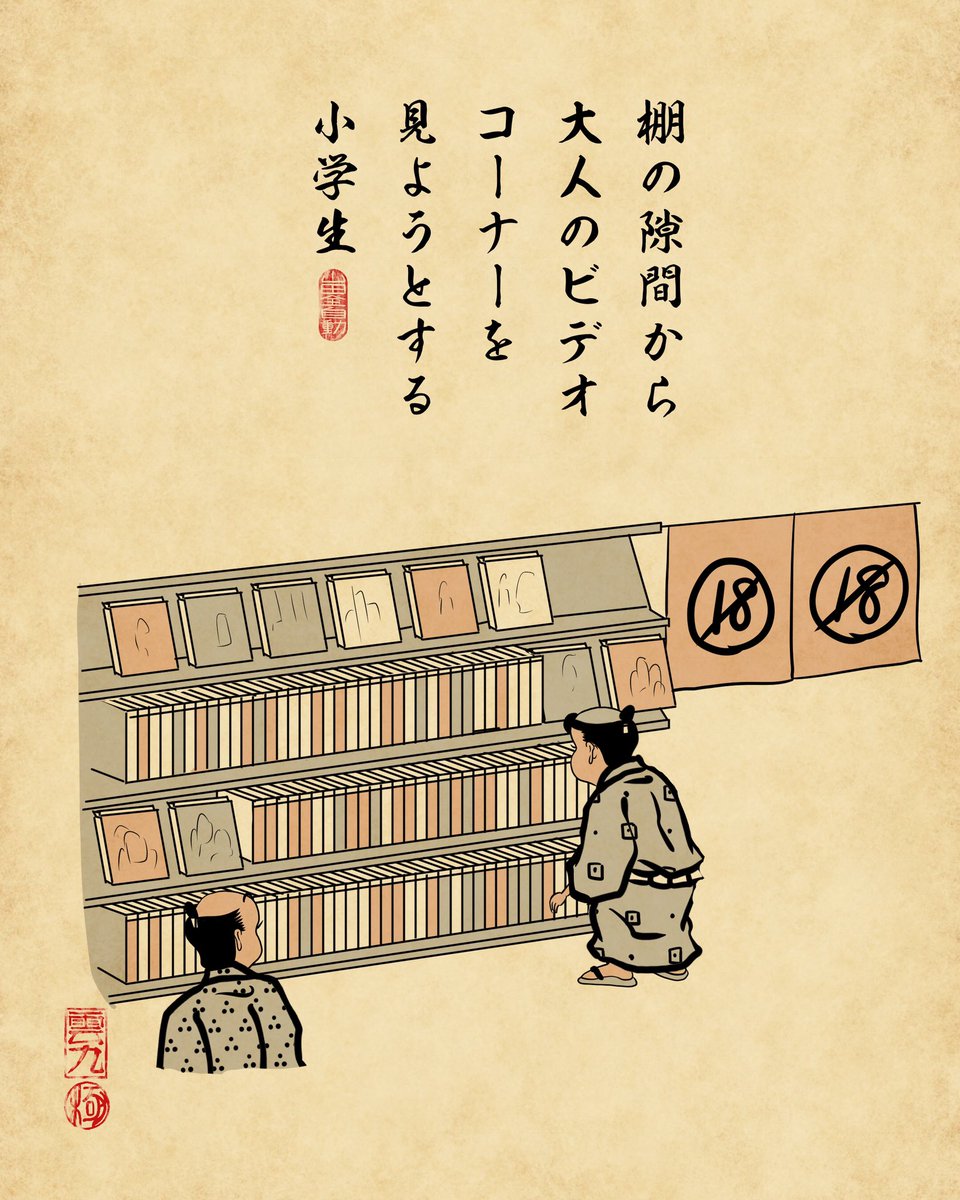 棚の隙間から
大人のビデオ
コーナーを
見ようとする
小学生
18
18
雲九
極